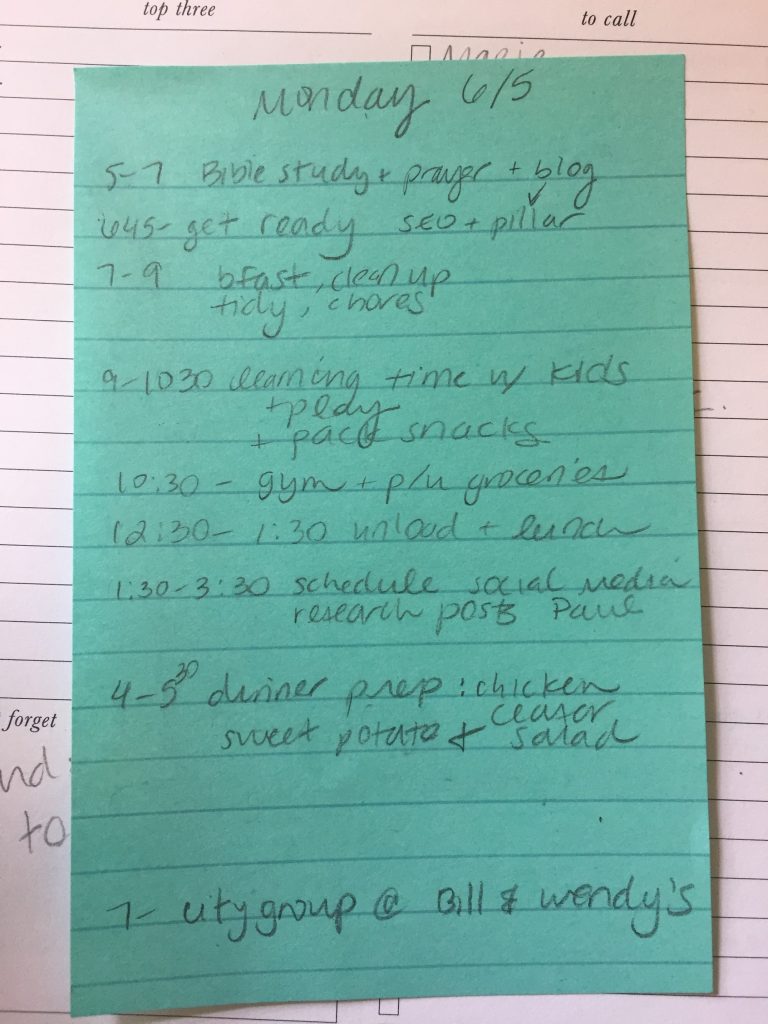 top three
to call
Monday 6/5
5-7 Bible study + prayer + blog
645- get ready SEO + pillar
7-9 bfast, clean up
tidy, chores
9-1030 learning time w/ kids
+ play
+ pack snacks
10:30 - gym + p/u groceries
12:30- 1:30 unload + lunch
1:30-3:30 schedule social media
research posts Paul
4-5 30 dinner prep : chicken
ceasar
sweet potato + salad
forget
nd
to
7- city group @ Bill & Wendy's